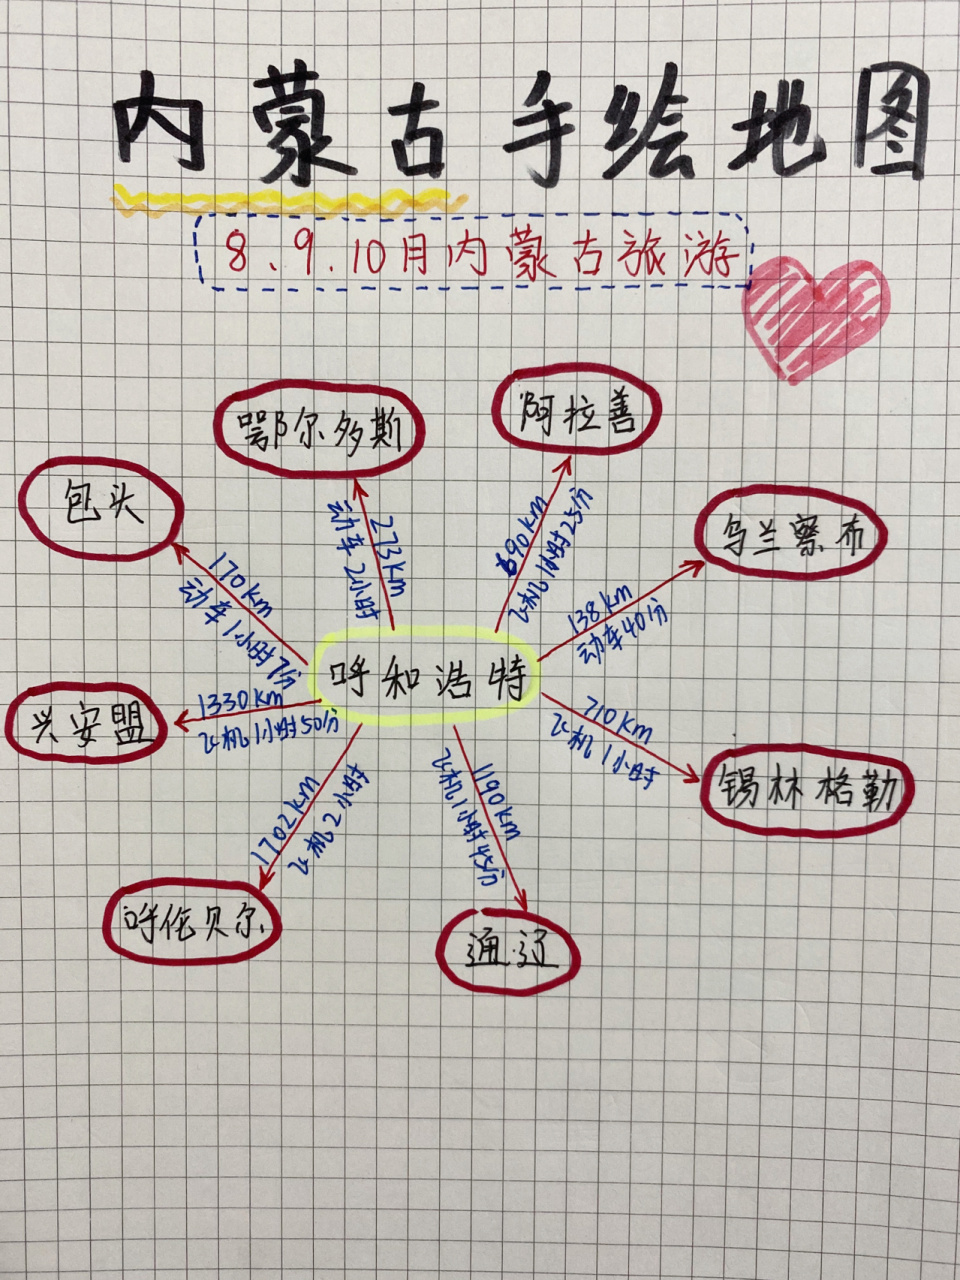 内蒙古手绘地图
8、9、10月内蒙古旅游
鄂尔多斯
阿拉善
包头
乌兰察布
273km
动车2小时
690km
飞机1小时25分
170km
动车1小时7分
138km
动车40分
呼和浩特
兴安盟
1330km
飞机1小时50分
710km
飞机1小时
锡林格勒
1702km
飞机2小时
1190km
飞机1小时45分
呼伦贝尔
通辽